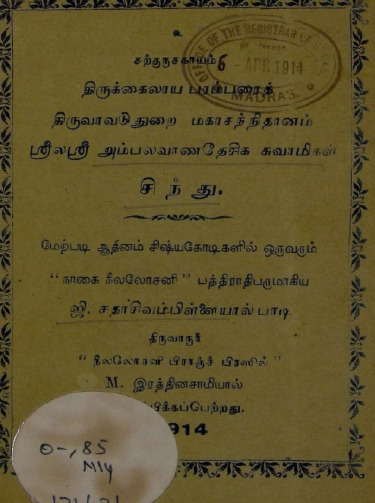 உ
சற்குருசகாயம்
6
OFFICE OF THE REGISTRAR OF
- APR 1914
MADRAS.
திருக்கைலாய பரம்பரைத்
திருவாவடுதுறை மகாசந்நிதானம்
ஸ்ரீலஸ்ரீ அம்பலவாணதேசிக சுவாமிகள்
சிந்து.
மேற்படி ஆதீனம் சிஷ்யகோடிகளில் ஒருவரும்
"நாகை நீலலோசனி" பத்திராதிபருமாகிய
ஜி. சதாசிவம்பிள்ளையால் பாடி
திருவாரூர்
"நீலலோசனி பிராஞ்ச் பிரஸில்"
M. இரத்தினசாமியால்
பிக்கப்பெற்றது.
1914
0-,85
M14